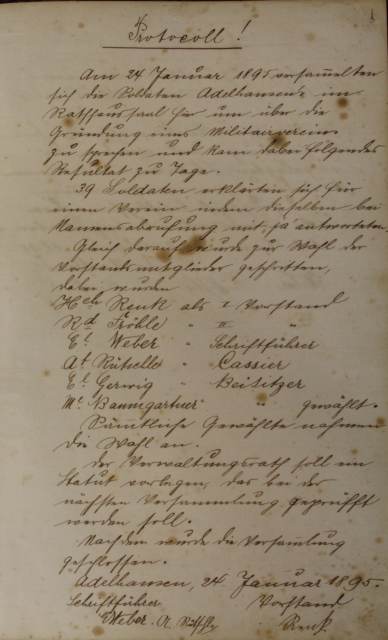 1
Protocoll!
Am 24 Januar 1895 versam̅elten
sich die Soldaten Adelhausen's im
Rathhaussaal hier um über die
Gründung eines Militairvereins
zu sprechen und kam dabei folgendes
Resultat zu Tage.
39 Soldaten erklärten sich für
einen Verein indem dieselben bei
Namensabrufung mit „ja" antworteten.
Gleich darauf wurde zur Wahl der
Vorstandsmitglieder geschritten,
dabei wurden
Hch Renk als I Vorstand
Rd Fröhle " II "
Et Weber " Schriftführer
At Rütschle " Cassier
Et Gerwig " Beisitzer
Mt Baumgartner " " gewählt.
Sämtliche Gewählte nahmen
die Wahl an.
Der Verwaltungsrath soll ein
Statut vorlegen, das bei der
nächsten Versammlung geprüfft
werden soll.
Nachdem wurde die Versamlung
geschlossen.
Adelhausen, 24 Januar 1895.
Schriftführer Vorstand
Weber. A. Rütschle Renk.